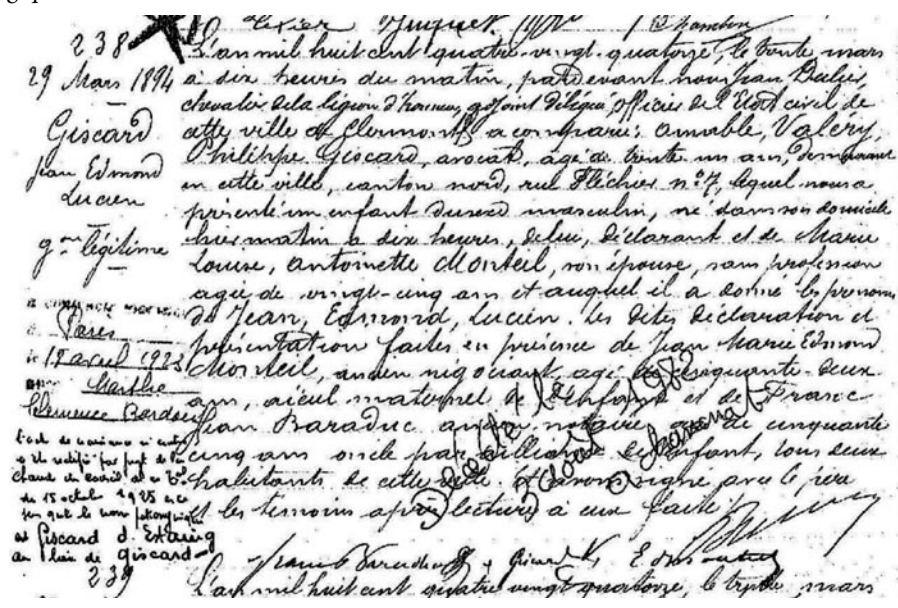 238
29 Mars 1894
Giscard
Jean Edmond
Lucien
g.on légitime
Paris
le 17 avril 1923
Marthe
Clémence Bardou
L'acte de
a été rectifié par jugt de
du 15 octobre 1925 en ce
sen que le nom patronymique
est Giscard d'Estaing
au lieu de Giscard
239
L'an mil huit cent quatre-vingt-quatorze, le trente mars
à dix heures du matin, pardevant nous Jean
chevalier de la légion d'honneur, adjoint délégué, officier de l'Etat civil de
cette ville de Clermont, a comparu: Amable, Valéry,
Philippe Giscard, avocat, âgé de trente un ans, demeurant
en cette ville, canton nord, rue Fléchier n° 7, lequel nous a
présenté un enfant du sexe masculin, né dans son domicile
hier matin à dix heures, de lui, déclarant et de Marie
Louise, Antoinette Monteil, son épouse, sans profession
âgée de vingt-cinq ans et auquel il a donné les prénoms
de Jean, Edmond, Lucien. Les dites déclaration et
présentation faites en présence de Jean Marie Edmond
Monteil, ancien négociant, âgé de cinquante-deux
ans, aïeul maternel de l'enfant et de Franc
Jean Baraduc ancien notaire, âgé de cinquante
cinq ans oncle par alliance de l'enfant, tous deux
habitants de cette ville. Et avons signé avec le père
et les témoins après lecture à eux faite.
Décédé le
3 août 1982
à Chanonat
L'an mil huit cent quatre vingt quatorze, le trente mars